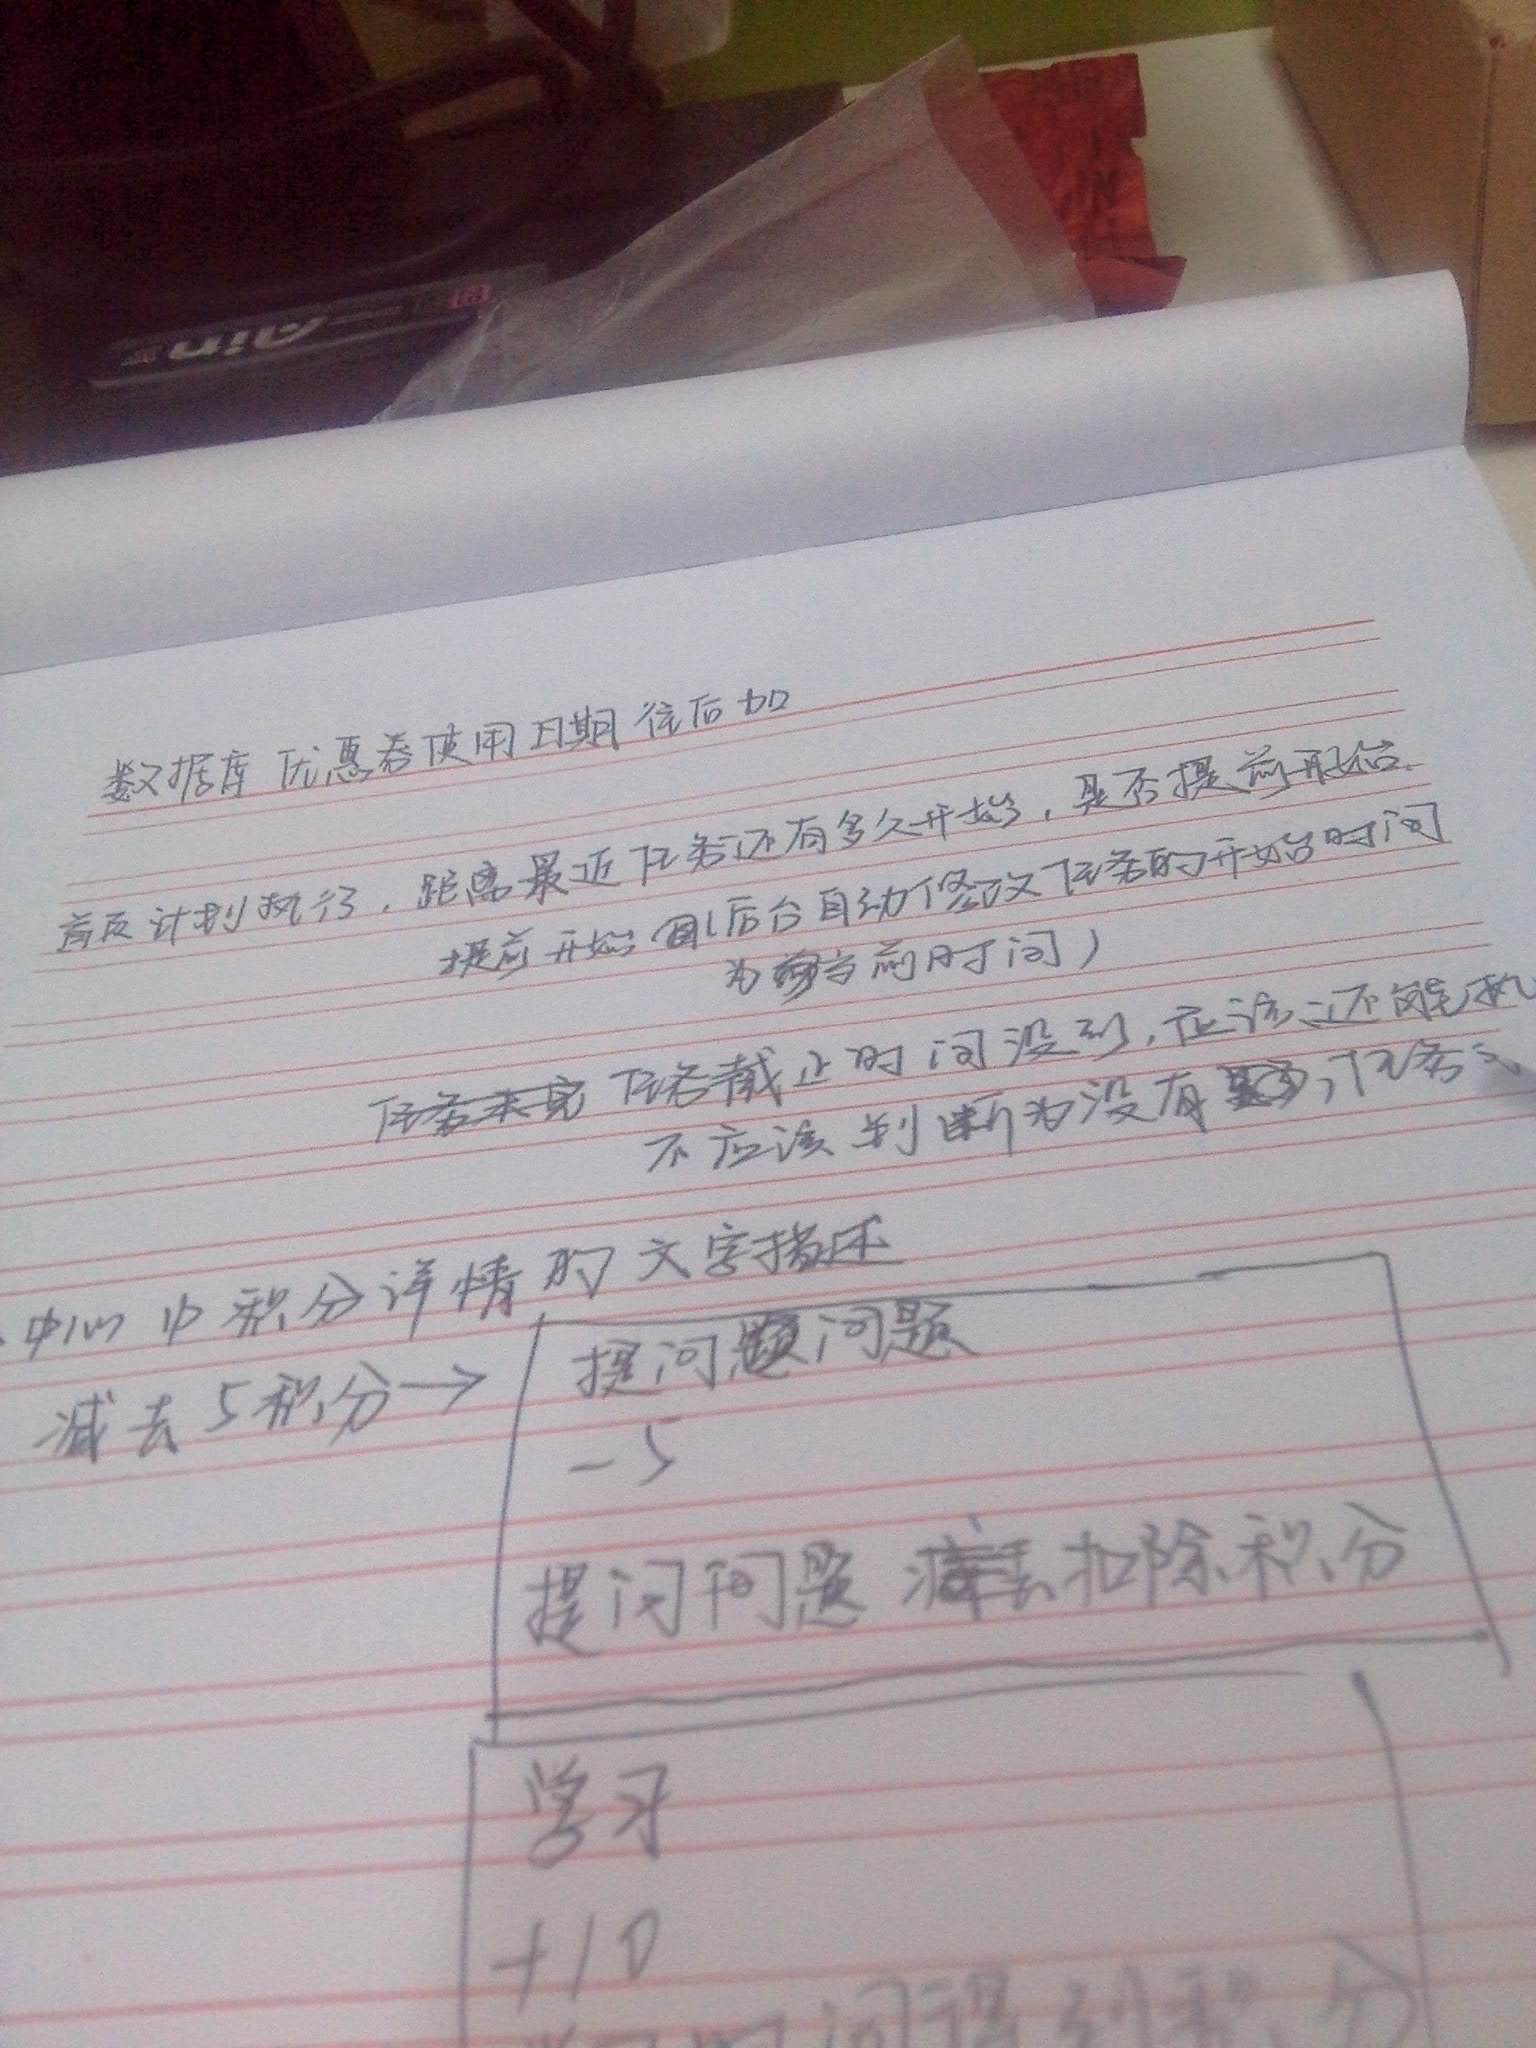 数据库优惠券使用日期往后加
首页计划执行，距离最近任务还有多久开始，是否提前开始.
提前开始(后台自动修改任务的开始时间
为当前时间)
任务未完 任务截止时间没到，应该还能执
不应该判断为没有，任务
中心中积分详情的文字描述
减去5积分→
提问问题
-5
提问问题 扣除积分
学习
+10
时间得到积分